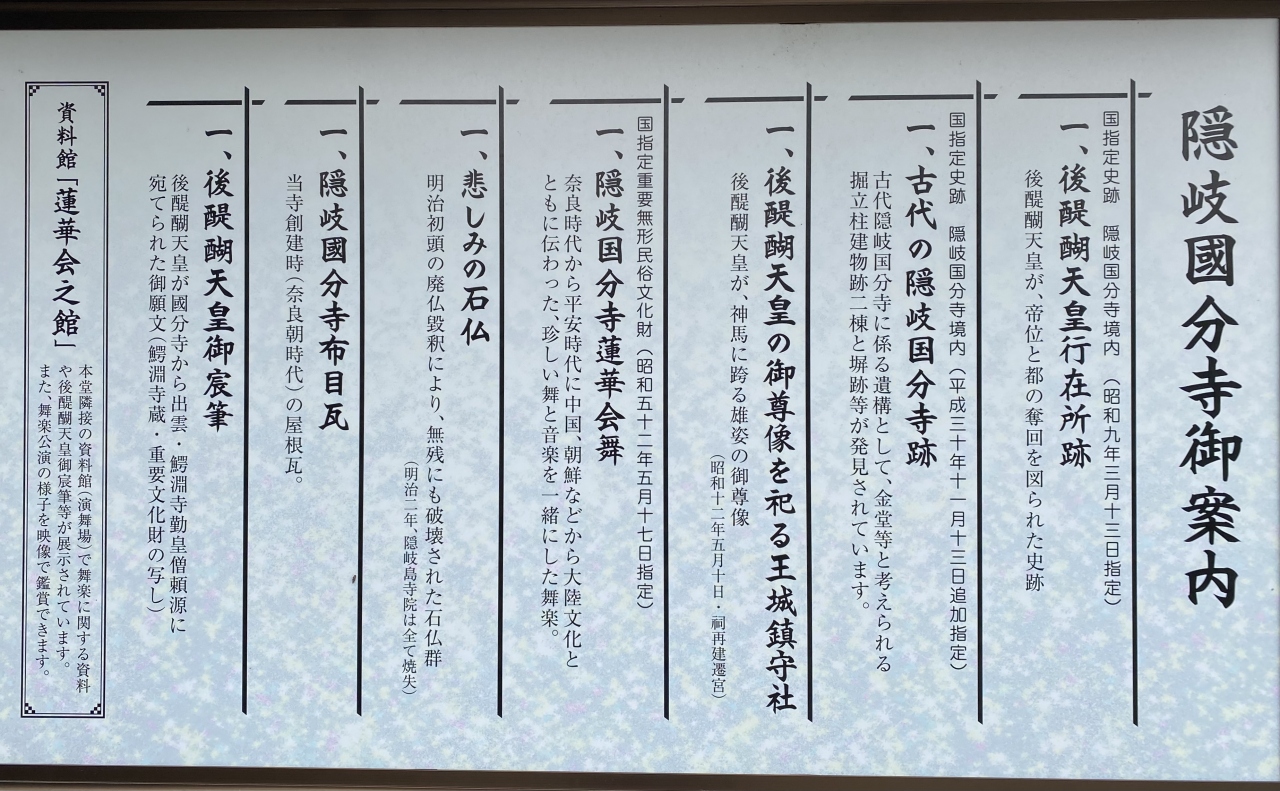 隠岐國分寺御案内
国指定史跡　隠岐国分寺境内　（昭和九年三月十三日指定）
一、後醍醐天皇行在所跡
後醍醐天皇が、帝位と都の奪回を図られた史跡
国指定史跡　隠岐国分寺境内（平成三十年十一月十三日追加指定）
一、古代の隠岐国分寺跡
古代隠岐国分寺に係る遺構として、金堂等と考えられる
掘立柱建物跡二棟と塀跡等が発見されています。
一、後醍醐天皇の御尊像を祀る王城鎮守社
後醍醐天皇が、神馬に跨る雄姿の御尊像
（昭和十二年五月十日・祠再建遷宮）
国指定重要無形民俗文化財（昭和五十二年五月十七日指定）
一、隠岐国分寺蓮華会舞
奈良時代から平安時代に中国、朝鮮などから大陸文化と
ともに伝わった、珍しい舞と音楽を一緒にした舞楽。
一、悲しみの石仏
明治初頭の廃仏毀釈により、無残にも破壊された石仏群
（明治二年、隠岐島寺院は全て焼失）
一、隠岐國分寺布目瓦
当寺創建時（奈良朝時代）の屋根瓦。
一、後醍醐天皇御宸筆
後醍醐天皇が國分寺から出雲・鰐淵寺勤皇僧頼源に
宛てられた御願文（鰐淵寺蔵・重要文化財の写し）
資料館「蓮華会之館」
本堂隣接の資料館（演舞場）で舞楽に関する資料
や後醍醐天皇御宸筆等が展示されています。
また、舞楽公演の様子を映像で鑑賞できます。